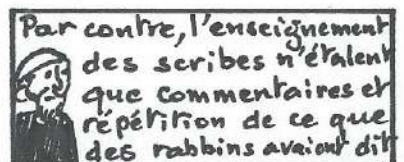 Par contre, l'enseignement
des scribes n'étaient
que commentaires et
répétition de ce que
des rabbins avaient dit